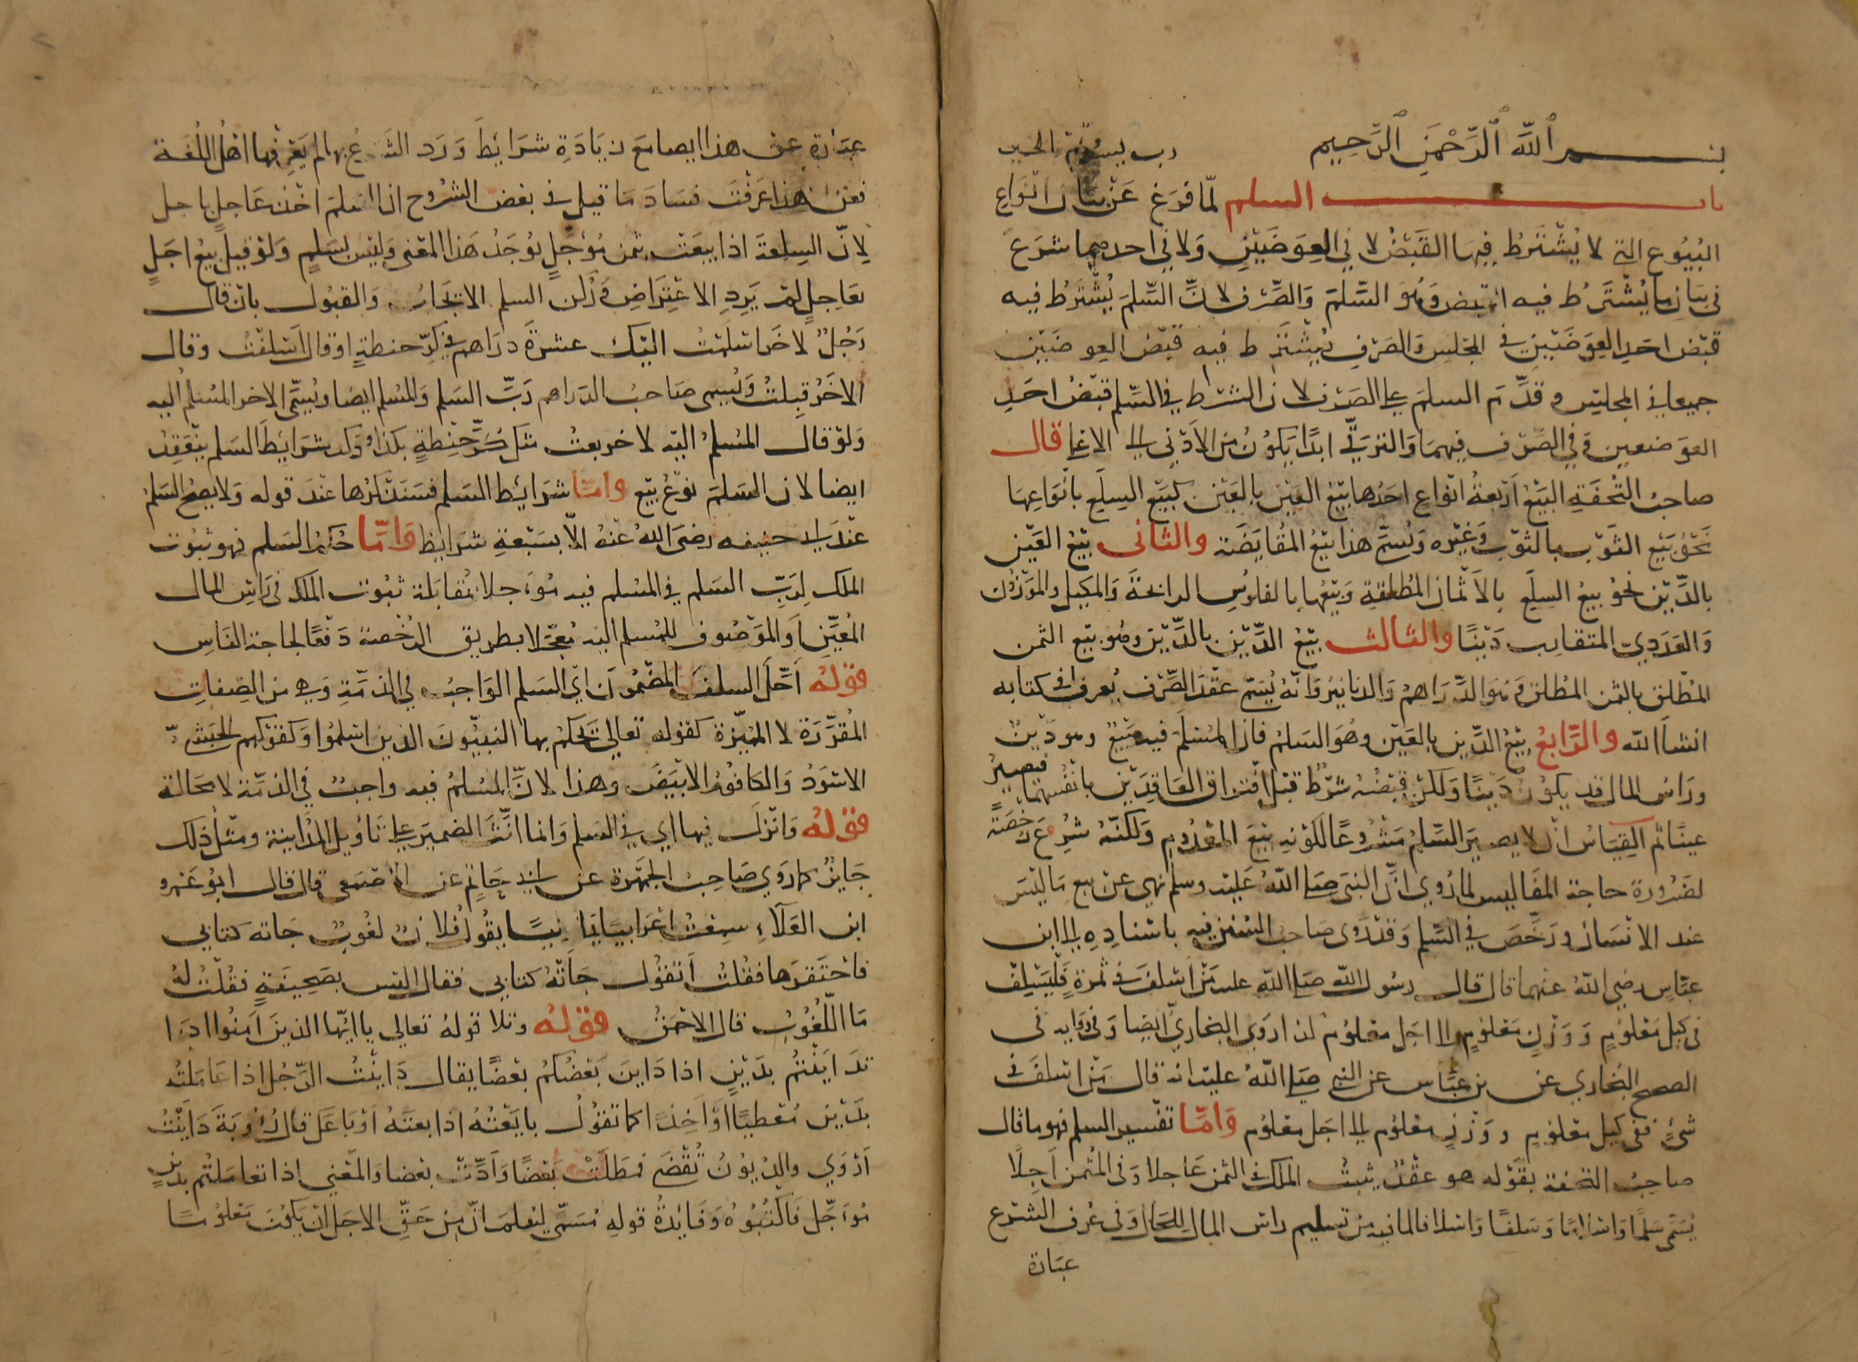 بسم الله الرحمن الرحيم رب يسر وتمم بالخير
باب السلم لمّا فرغ عن بيان انواع
البُيُوع التي لا يُشْتَرطُ فيها القَبْضُ لا في العِوَضَيْنِ وَلا في احدهما شرَعَ
في بيان ما يُشْتَرَطُ فيه القبض وَهُوَ السَّلَمَ وَالصَّرف لانّ السَّلَمَ يُشْتَرَطُ فيه
قبْضُ احَدِ العِوَضَيْنِ في المجلِس وَالصَرْفِ يُشْتَرَط فيه قبْض العِوضَيْن
جميعا في المجلِس وقدِّم السلمَ على الصَرْف لان الشرْط في السَّلم قبْضُ احَدِ
العوَضين وَفي الصَّرْفِ فيهمَا وَالتَرَقّي ابدًا يَكوُنُ مِنَ الاَدْنى الى الاعلى قال
صاحبُ التُّحْفَةِ البَيْعُ اَرْبَعَةُ انْوَاعٍ احَدُها بَيْعُ العَيْن بالعَيْن كبَيْعِ السِلَعِ بانْوَاعِهَا
نحْوُ بَيْع الثَوْب بالثوْب وَغيْره وَيُسَمَّى هذا بَيْعُ المُقَايَضَة والثاني بَيْعُ العَيْن
بالدَّيْن نحوُ بيعُ السِلَع بالاَثْمان المُطلقةِ وَبَيْعُهَا بالفلوُسِ الرائجةَ وَالمكيل والموْزوُن
وَالعَدَديِّ المتقارِب دَيْنًا والثالث بَيْعُ الدَّيْن بالدَّيْن وهُو بَيْع الثمن
المُطْلق بالثمن المُطلق وَهُوَ الدَّرَاهِمُ وَالدنانيرُ وَانّهُ يُسَمّى عقدَ الصَّرْف يُعرف في كتابه
انشا الله والرَّابعُ بَيْعُ الدَّين بالعَيْن وهُوَ السَلمُ فان المُسْلَمَ فيه مَبيعٌ وهو دَيْنٌ
ورَاسُ المال قد يكوُنُ دَيْنًا وَلكنْ قبْضُهُ شرْطٌ قبْل افْتِراق العَاقِدَيْن بانْفُسِهما فيصِيرُ
عينًا ثم القِيَاسُ انْ لا يصيرَ السَّلمُ مَشْرُوعًا لكَوْنِهِ بَيْعَ المَعْدُوم وَلكنّهُ شرُعَ رُخصَةً
لضَرُورة حاجة المفَاليس لما رُوِي انَّ النبيَّ صلى اللهُ عَليْه وسلم نهى عن بيع مَا ليْسَ
عند الانْسَان وَرَخّصَ في السَّلم وَقدْ رَوى صاحبُ السُنَن فيه باسْنادِهِ الى ابن
عبّاسٍ رضي اللهُ عنهما قال قال رسُولُ اللهِ صَلى اللهِ عليه مَنْ اسْلفَ في ثمرةٍ فَلْيُسْلِفْ
في كيْل مَعْلوُمٍ وَوَزْنٍ مَعْلوُمٍ الى اجَل معْلوُم كذا رَوَى البخاريُّ ايضا وَفي رواية في
الصحيح البُخاري عن بن عبَّاس عن النبي صَلى اللهُ عليْه انه قال مَنْ اسْلفَ في
شئٍ ففي كيل معْلوُم ووزْنٍ معْلوُم الى اجَل معْلوُم وَامَّا تفْسير السلم فهو ما قال
صاحبُ التحفة بقوله هو عقْدٌ يثبتُ الملك في الثمن عَاجلا وَفي المثْمن اَجلًا
يُسَمَّى سَلمًا وَاسْلامًا وَسَلفًا وَاسْلافا لما فيه من تسليم راس المال للحَال وَفي عُرف الشرْع
عبَارة
عبَارة عن هذا ايضا مَعَ زيَادَةِ شرَايِطَ وَرَد الشرْعُ بها لم يَعْرِفها اهْلُ اللُّغَة
فعن هذا عَرَفْتَ فسَادَ مَا قيل في بعْض الشرُوح ان السلمَ اخْذ عَاجلٍ باجل
لِانّ السِلعةَ اذا بيعَتْ بثمن مُؤجّلٍ يُوجَدُ هَذا المعْنى وَليْس بسَلمٍ وَلوْ قيل بيْعُ اجلٍ
بعَاجلٍ لمْ يَرِدِ الاعْتِرَاضِ وَرُكْن السلم الايْجَابُ وَالقبُول بان قال
رَجُلٌ لاخَرَ اسْلمْتُ اليْكَ عشرةَ دَرَاهم في كرّ حنطةٍ او قال اَسْلفْتُ وقال
الاخَرُ قبِلتُ وَيُسمى صَاحبُ الدَراهم رَبَّ السَلم وَالمُسْلم ايضا ويُسَمَّى الاخر المُسْلمُ اليه
وَلوْ قال المُسْلمُ اليْه لاخر بعتُ منك كرَّ حِنْطةٍ بكذا وذكر شرَايِطَ السَلم ينْعَقِدُ
ايضا لان السَلمَ نوْعُ بَيْع وامّا شرَائِط السَلم فسَنَذْكرُها عنْدَ قوله وَلا يصحُّ السَلمُ
عنْدَ ابي حنيفه رضيَ اللهُ عنْهُ الاّ بسَبْعةِ شرَايِط وَامَّا حُكمُ السَلم فهو ثبوُت
الملك لِرَبِّ السَلم في المُسْلم فيه مُوَجلا بمُقَابَلة ثبوُت المَلك في رَاسِ المال
المُعَيَّن اَو الموَصُوف للمُسْلم اليْه مُعَجّلا بطريق الرُخْصة دَفعًا لحاجة النّاسِ
قولهُ اَحّلَ السلفَ المضمُونَ اَي السَلم الوَاجبُ في الذمّةِ وَهي من الصِفاتِ
المُقرِّرَة لا المُميِّزة كقوله تعالى يَحْكمُ بها النبيّونَ الذين اسْلمُوا وَكقوْلهم الحَبَشيّ
الاسْوَدُ وَالكافُورُ الابْيَضُ وهذا لانَّ المُسْلمُ فيه واجبٌ في الذمّة لا محَالة
قولهُ وَانْزلَ فيها اي في السَلم وَانما انَّثَ الضميرَ على تَاوُيل المُدَاينة ومثْلُ ذلك
جَايزٌ كما رَوي صَاحبُ الجَمْهَرة عن ابي حَاتِم عن الاصْمَعي قال قال ابوُ عَمْرو
ابن العَلآء سَمِعْتُ اعْرَابيًا يمانيًا يقُولُ فُلانٌ لغُوبٌ جَاتْه كتَابي
فاحْتَقرَهَا فقلتُ اتقُول جَاتْهُ كتابي فقال اليْسَ بصَحِيفَةٍ فقُلتُ لهُ
مَا اللّغُوبُ قال الاحْمَقُ قولهُ وتلا قوْلهُ تعالى يا ايّها الذينَ امَنُوا اذَا
تدَايَنْتُم بدَيْنٍ اذا دَاينَ بَعْضُكُم بعْضًا يقال دَايَنْتُ الرّجُل اذا عَامَلتُه
بدَيْن مُعْطيًا اَوْ اَخِذًا كما تقوُلُ بايَعْتُهُ اذا بعتَهُ اوْ بَاعَك قال رُؤبَةَ دَايَنْتُ
اَرْوَي والديُونُ تُقْضَى فمَطلتْ بَعْضًا وَاَدَّتْ بعْضا وَالمعْني اذا تعَامَلتُم بدَيْنٍ
مُوَجّلٍ فَاكْتُبُوهُ وَفَايِدةُ قوله مُسَمَّى ليُعْلمَ انّ مِن حَقّ الاجَل انْ يَكوُنَ مَعْلوُمًا